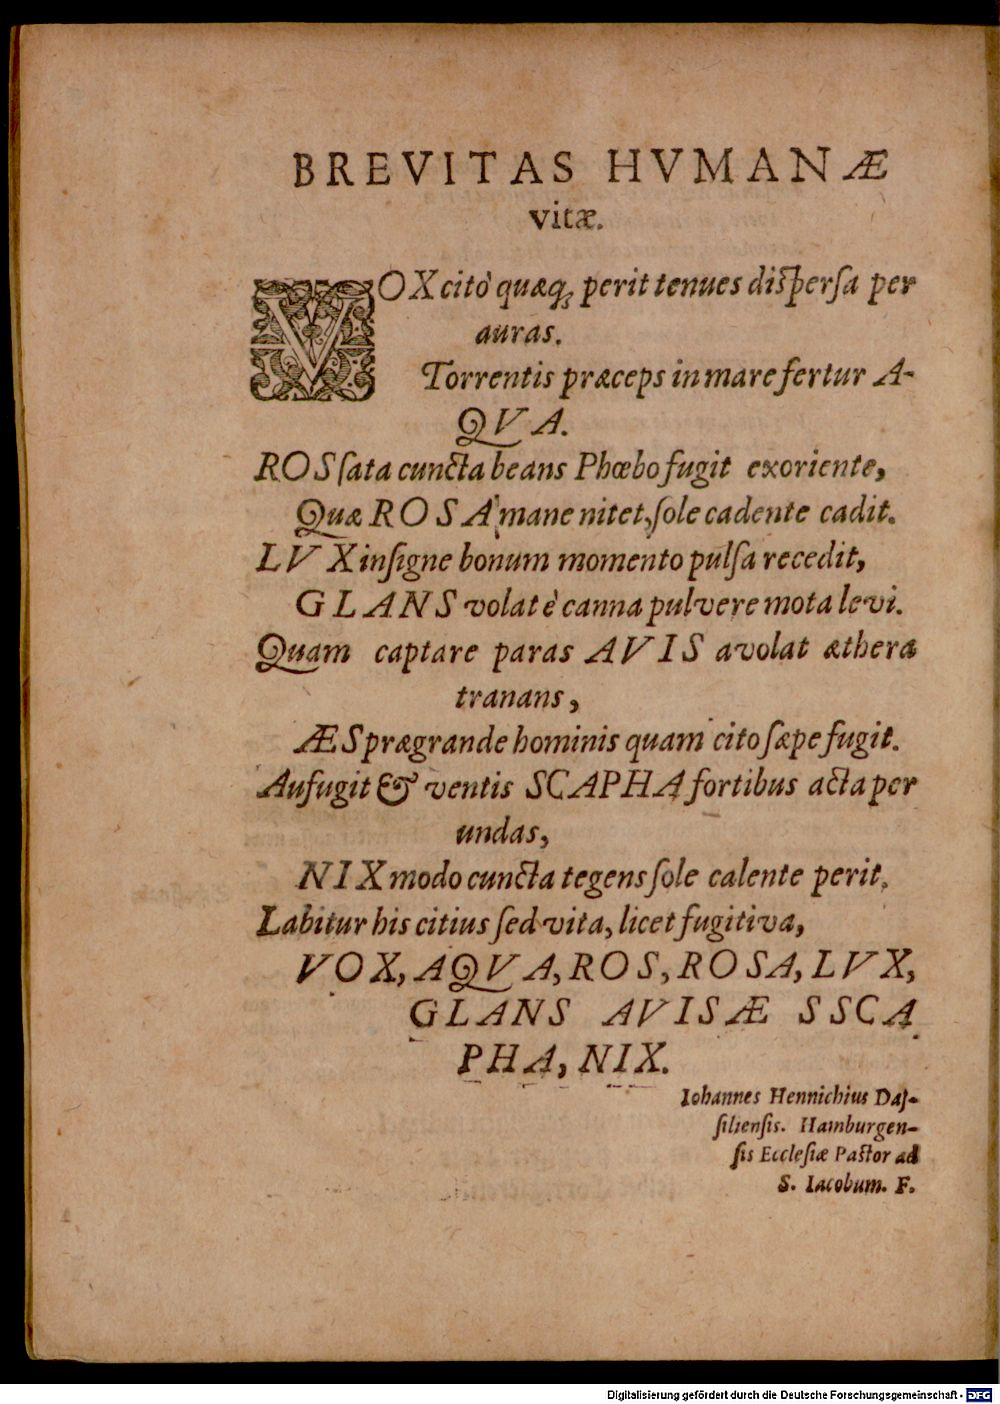 BREVITAS HVMANÆ
vitæ.
VOX citò quæq; perit tenues disperſa per
auras.
Torrentis præceps in mare fertur A-
QVA.
ROS ſata cuncta beans Phœbo fugit exoriente,
Quæ ROSA mane nitet, ſole cadente cadit.
LVX inſigne bonum momento pulſa recedit,
GLANS volat è canna pulvere mota levi.
Quam captare paras AVIS avolat æthera
tranans,
ÆS prægrande hominis quam cito ſæpe fugit.
Aufugit & ventis SCAPHA fortibus acta per
undas,
NIX modo cuncta tegens ſole calente perit,
Labitur his citius ſed vita, licet fugitiva,
VOX, AQVA, ROS, ROSA, LVX,
GLANS AVISÆ SSCA
PHA, NIX.
Iohannes Hennichius Daſ-
ſilienſis. Hamburgen-
ſis Eccleſiæ Paſtor ad
S. Iacobum. F.
Digitalisierung gefördert durch die Deutsche Forschungsgemeinschaft - DFG